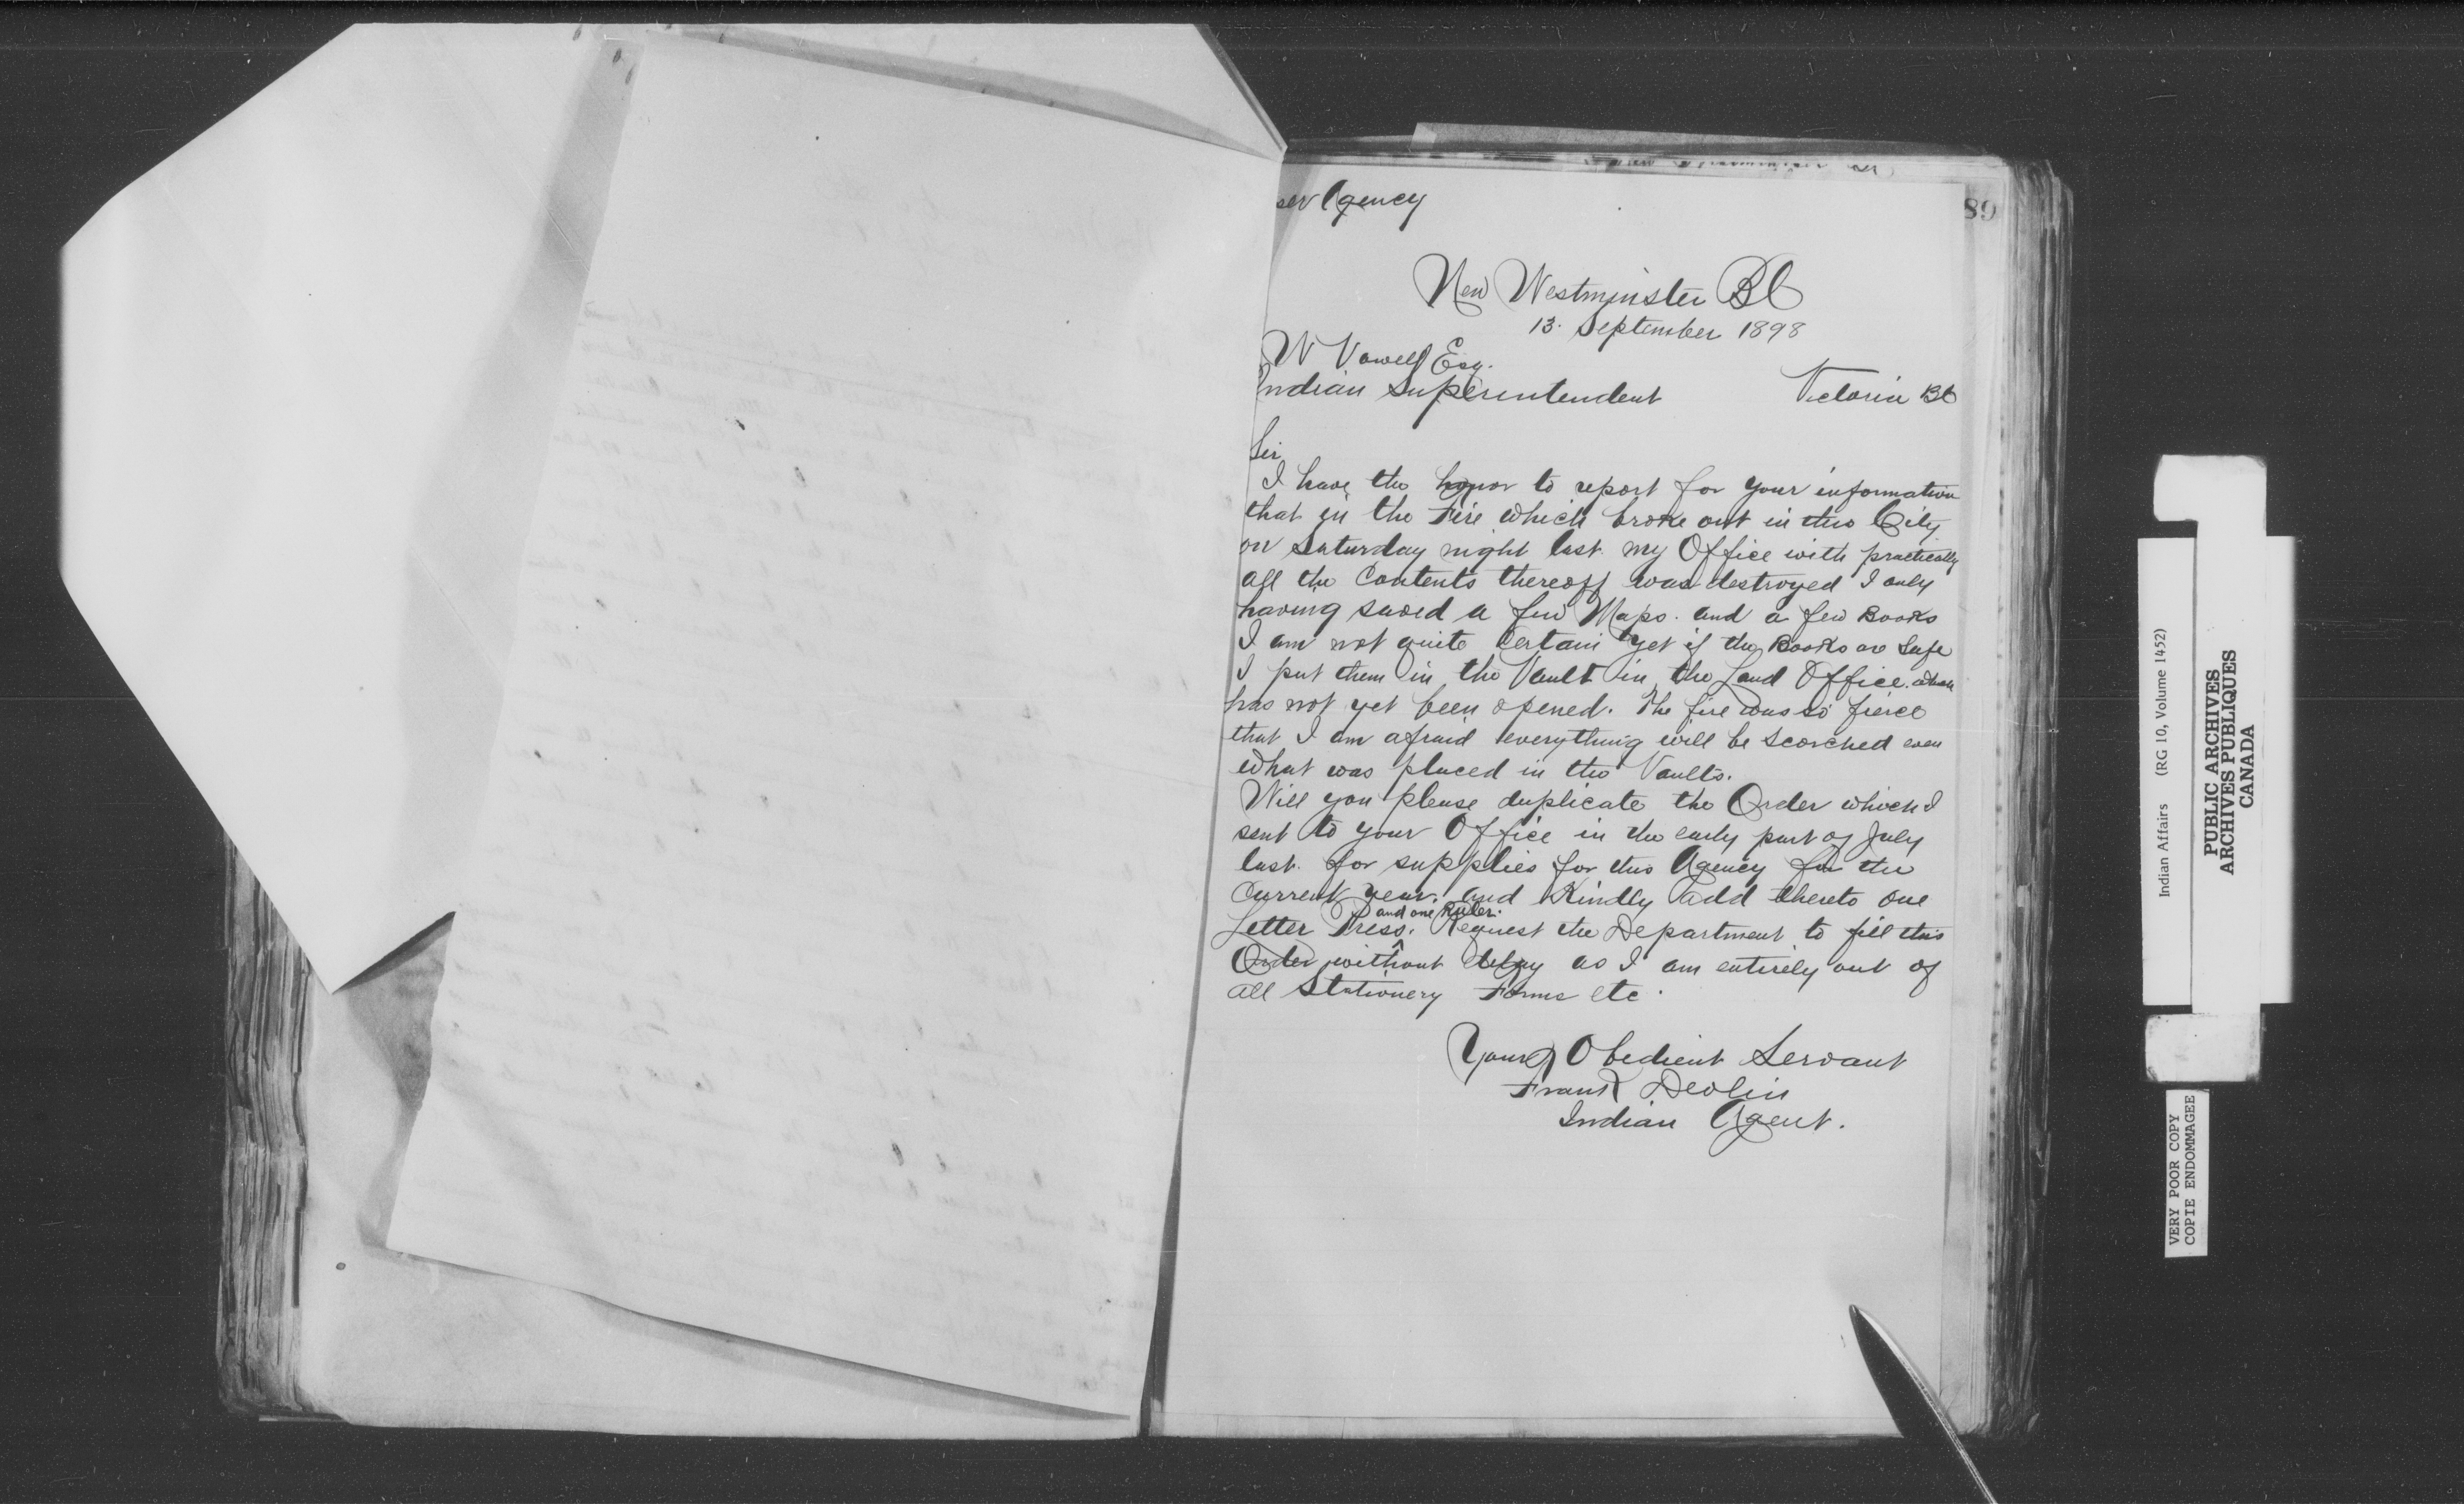 ser Agency
89
New Westminster BC
13. September 1898
W Vowell Esq.
Indian Superintendent Victoria BC
Sir
I have the honor to report for your information
that in the Fire which broke out in this City
on Saturday night last my Office with practically
all the Contents thereoff was destroyed I only
having saved a few Maps. and a few Books
I am not quite Certain yet if the Books are Safe
I put them in the Vault in the Land Office. which
has not yet been opened. The fire was so fierce
that I am afraid everything will be scorched even
what was placed in the Vaults.
Will you please duplicate the Order which I
sent to your Office in the early part of July
last. for supplies for this Agency for the
Current year. and Kindly add thereto one
and one Ruler.
Letter Press. Request the Department to fill this
Order without delay as I am entirely out of
all Stationery Forms etc.
Your Obedient Servant
Frank Devlin
Indian Agent.
Indian Affairs (RG 10, Volume 1452)
PUBLIC ARCHIVES
ARCHIVES PUBLIQUES
CANADA
VERY POOR COPY
COPIE ENDOMMAGEE